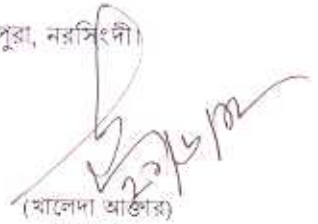 পুরা, নরসিংদী।
(খালেদা আক্তার)